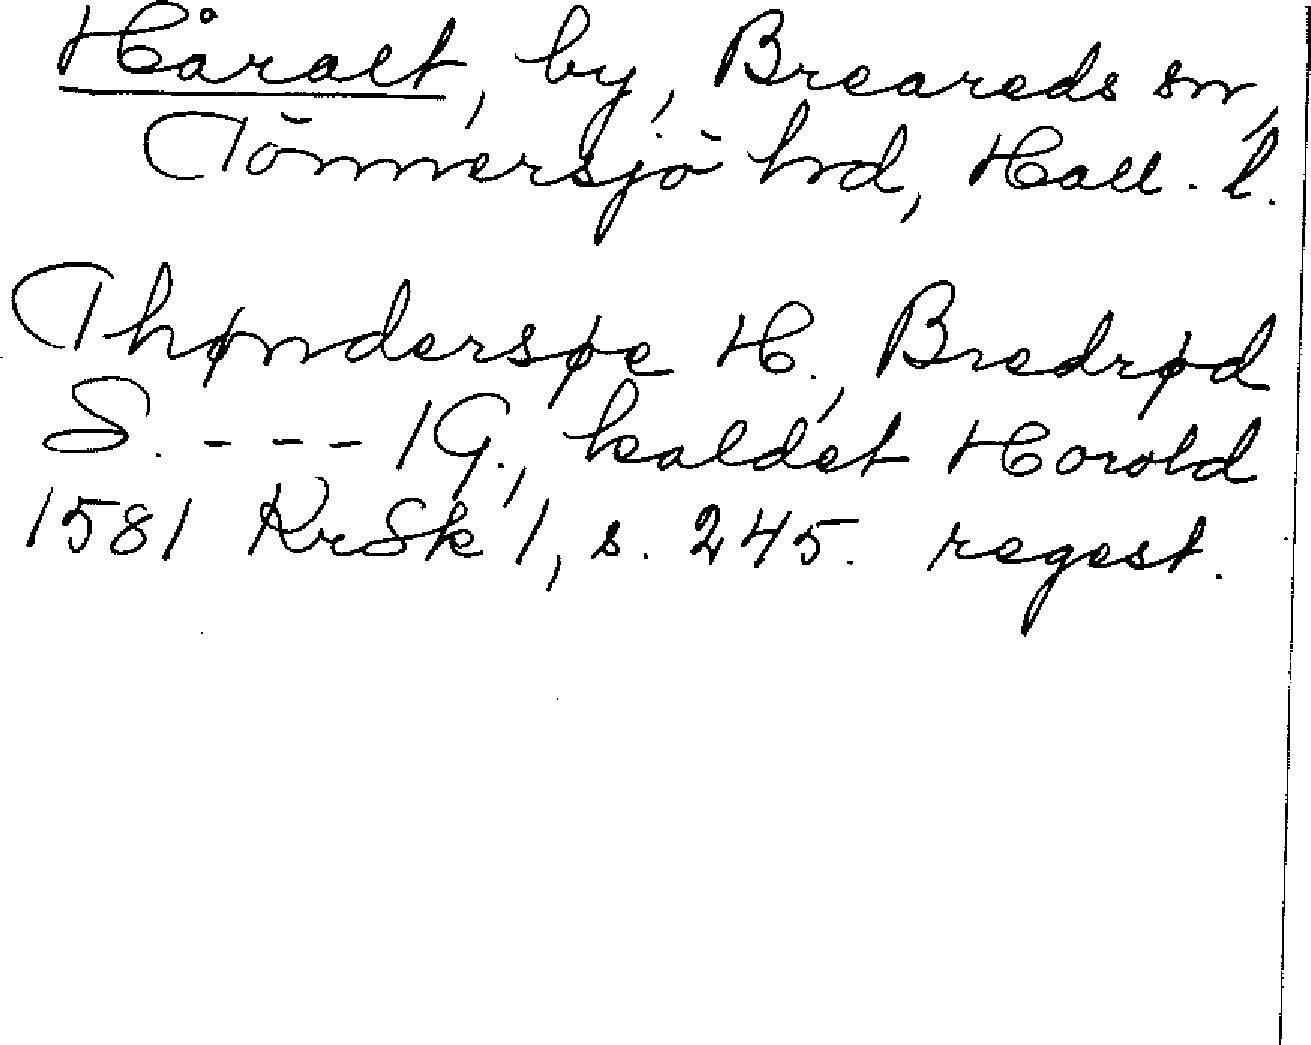 Håralt, by, Breareds sn,
Tönnersjö hrd, Hall. l.
Thøndersøe H., Bredrød
S. - - - 1 G., kaldet Horold
1581 KrSk 1, s. 245. regest.